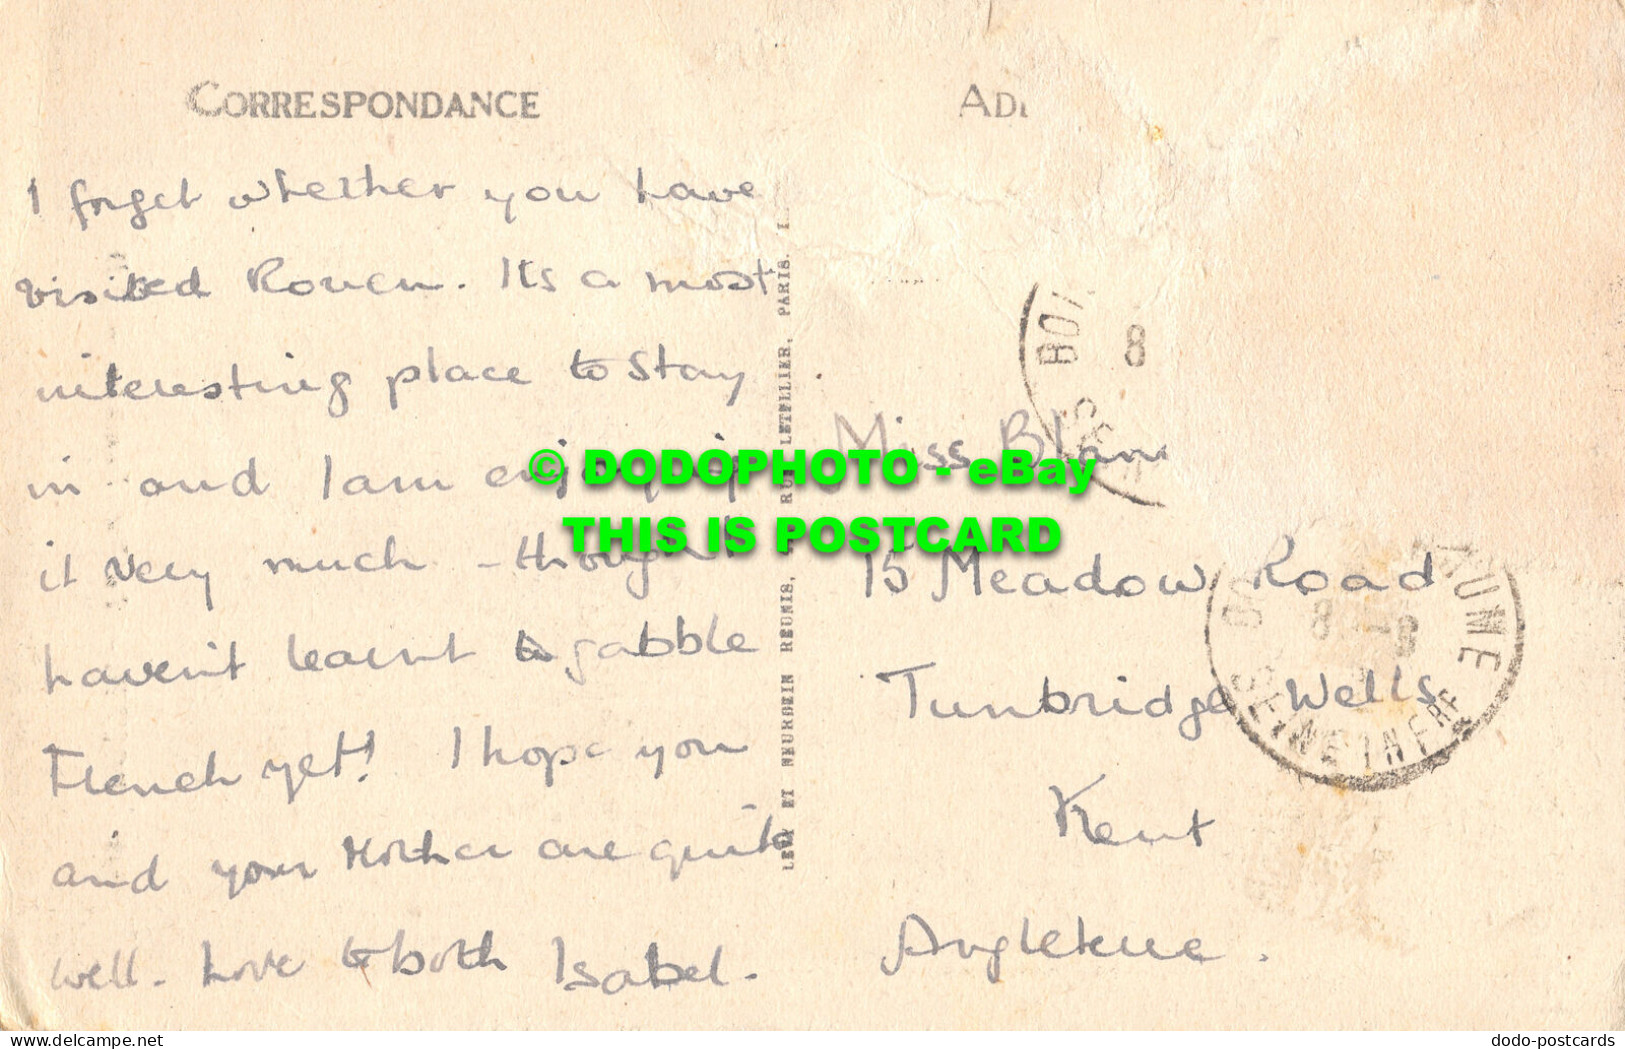 CORRESPONDANCE
I forget whether you have
visited Rouen. Its a most
interesting place to stay
in and I am enjoying
it very much - though I
haven't learnt to gabble
French yet! I hope you
and your Mother are quite
well. Love to both Isabel.
LEVY ET NEURDEIN REUNIS, RUE LETELLIER, PARIS.
Miss
15 Meadow Road
Tunbridge Wells
Kent
Angleterre.
SEINE INFRE
© DODOPHOTO - eBay
THIS IS POSTCARD
delcampe.net
dodo-postcards